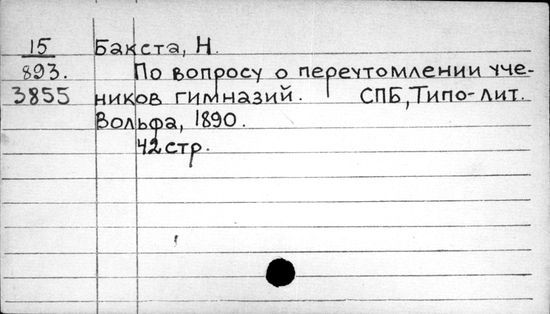 15 Бакста, Н.
893. По вопросу о переутомлении уче-
3855 ников гимназий. СПБ, Типо-лит.
Вольфа, 1890.
42 стр.